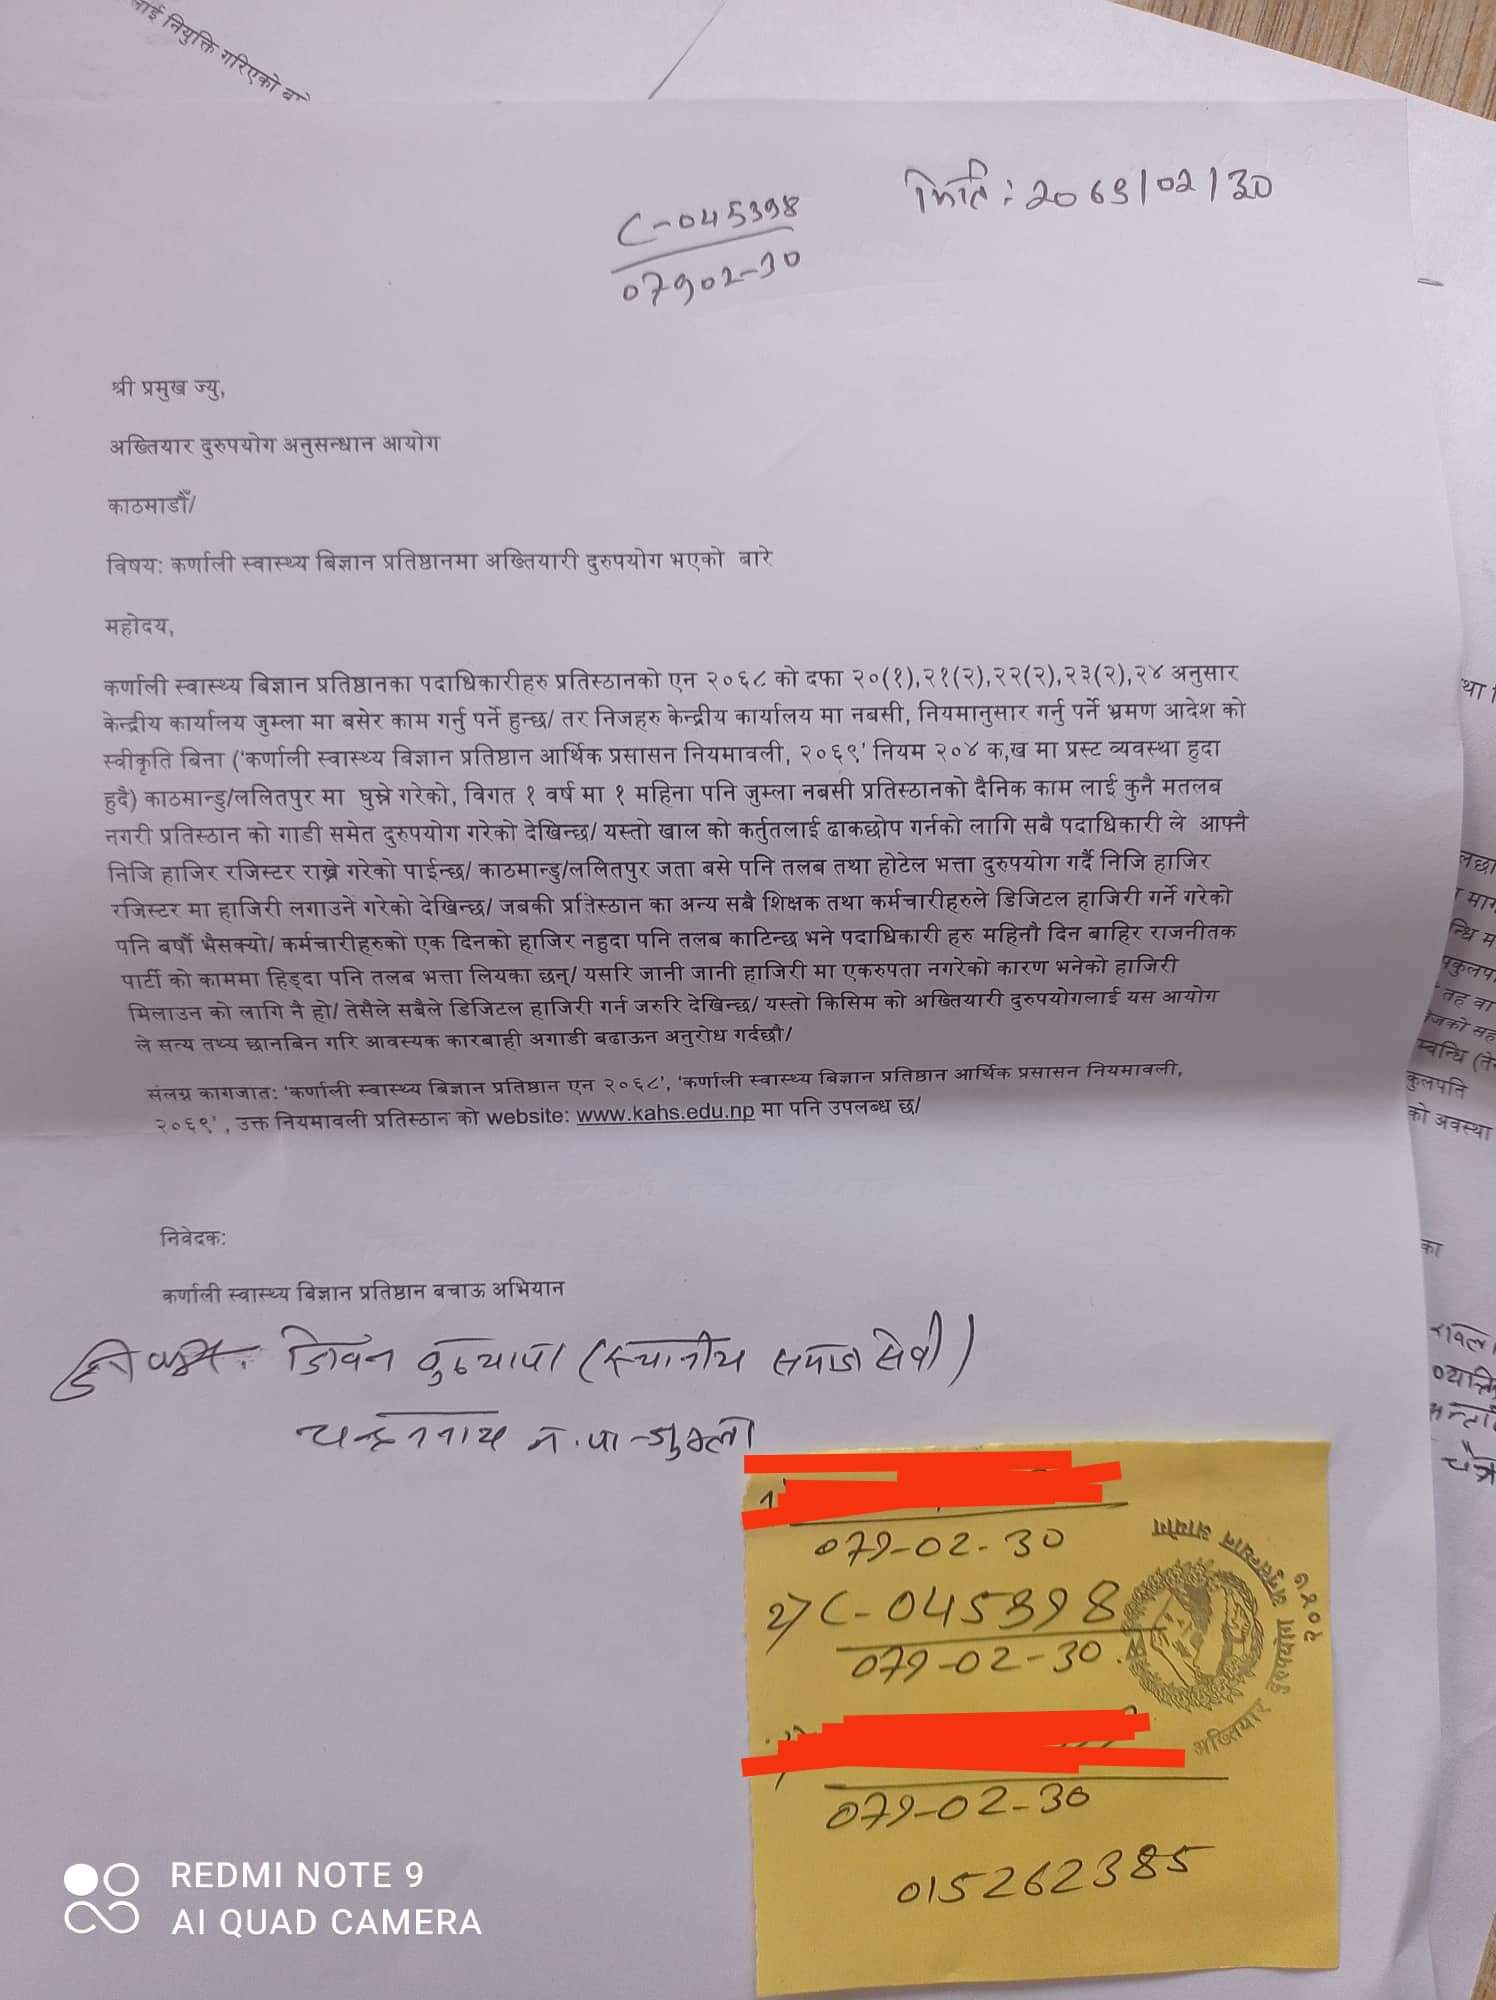 लाई नियुक्ति गरिएको
मिति: 2069/02/30
C-045398
07902-30
श्री प्रमुख ज्यु,
अख्तियार दुरुपयोग अनुसन्धान आयोग
काठमाडौँ/
विषय: कर्णाली स्वास्थ्य बिज्ञान प्रतिष्ठानमा अख्तियारी दुरुपयोग भएको बारे
महोदय,
कर्णाली स्वास्थ्य बिज्ञान प्रतिष्ठानका पदाधिकारीहरु प्रतिस्ठानको एन २०६८ को दफा २०(१),२१(२),२२(२),२३(२),२४ अनुसार
केन्द्रीय कार्यालय जुम्ला मा बसेर काम गर्नु पर्ने हुन्छ/ तर निजहरु केन्द्रीय कार्यालय मा नबसी, नियमानुसार गर्नु पर्ने भ्रमण आदेश को
स्वीकृति बिना ('कर्णाली स्वास्थ्य बिज्ञान प्रतिष्ठान आर्थिक प्रसासन नियमावली, २०६९' नियम २०४ क,ख मा प्रस्ट व्यवस्था हुदा
हुदै) काठमान्डु/ललितपुर मा घुम्ने गरेको, विगत १ वर्ष मा १ महिना पनि जुम्ला नबसी प्रतिस्ठानको दैनिक काम लाई कुनै मतलब
नगरी प्रतिस्ठान को गाडी समेत दुरुपयोग गरेको देखिन्छ/ यस्तो खाल को कर्तुतलाई ढाकछोप गर्नको लागि सबै पदाधिकारी ले आफ्नै
निजि हाजिर रजिस्टर राख्ने गरेको पाईन्छ/ काठमान्डु/ललितपुर जता बसे पनि तलब तथा होटेल भत्ता दुरुपयोग गर्दै निजि हाजिर
रजिस्टर मा हाजिरी लगाउने गरेको देखिन्छ/ जबकी प्रतिस्ठान का अन्य सबै शिक्षक तथा कर्मचारीहरुले डिजिटल हाजिरी गर्ने गरेको
पनि बर्षौ भैसक्यो/ कर्मचारीहरुको एक दिनको हाजिर नहुदा पनि तलब काटिन्छ भने पदाधिकारी हरु महिनौ दिन बाहिर राजनीतक
पार्टी को काममा हिड्दा पनि तलब भत्ता लियका छन्/ यसरि जानी जानी हाजिरी मा एकरुपता नगरेको कारण भनेको हाजिरी
मिलाउन को लागि नै हो/ तेसैले सबैले डिजिटल हाजिरी गर्न जरुरि देखिन्छ/ यस्तो किसिम को अख्तियारी दुरुपयोगलाई यस आयोग
ले सत्य तथ्य छानबिन गरि आवस्यक कारबाही अगाडी बढाऊन अनुरोध गर्दछौ/
संलग्न कागजात: 'कर्णाली स्वास्थ्य बिज्ञान प्रतिष्ठान एन २०६८', 'कर्णाली स्वास्थ्य बिज्ञान प्रतिष्ठान आर्थिक प्रसासन नियमावली,
२०६९' , उक्त नियमावली प्रतिस्ठान को website: www.kahs.edu.np मा पनि उपलब्ध छ/
निवेदक:
कर्णाली स्वास्थ्य बिज्ञान प्रतिष्ठान बचाऊ अभियान
जिवन बुढथापा (स्थानीय समाज सेवी)
चन्दननाथ न.पा-जुम्ला
079-02-30
2) C-045398
079-02-30
079-02-30
015262385
अख्तियार दुरुपयोग अनुसन्धान आयोग
REDMI NOTE 9
AI QUAD CAMERA